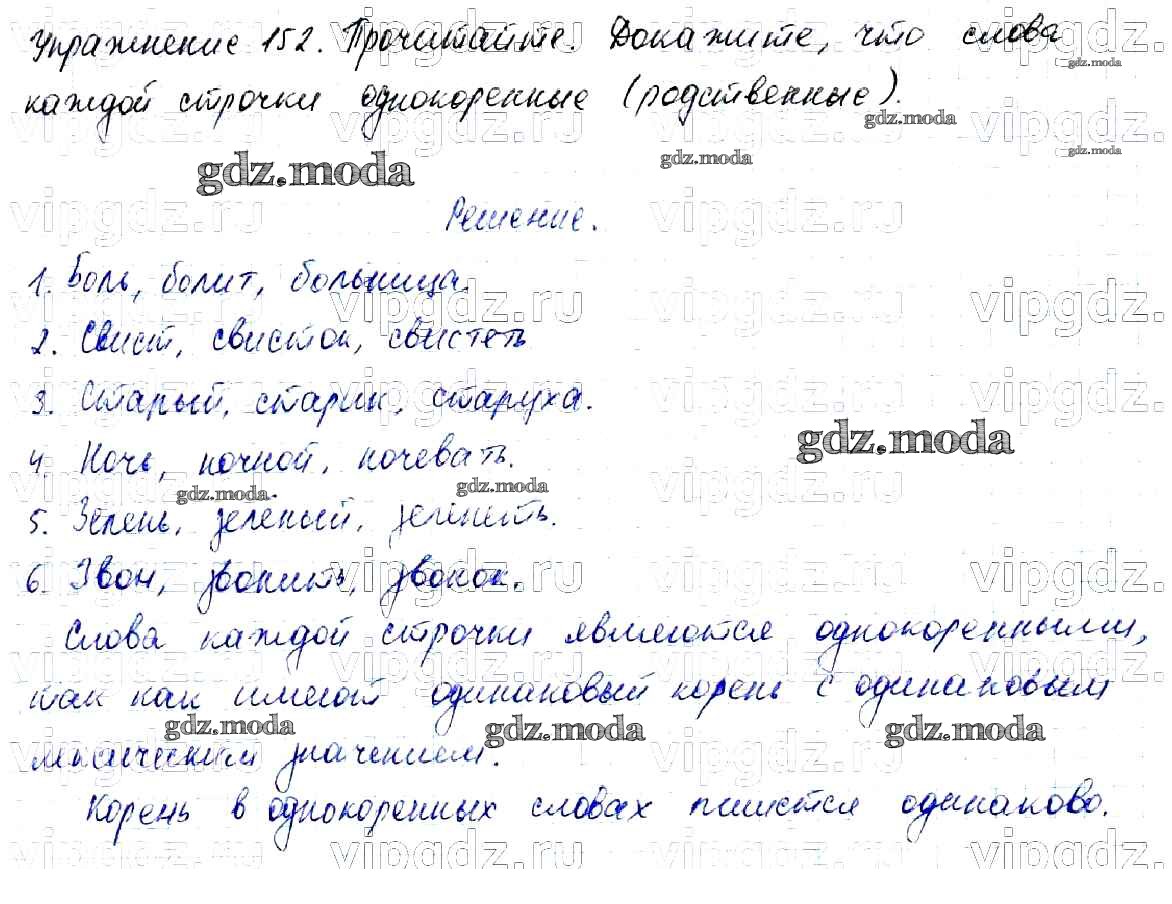 Упражнение 152. Прочитайте. Докажите, что слова
каждой строчки однокоренные (родственные).
gdz.moda
Решение.
1. Боль, болит, больница.
2. Свист, свисток, свистеть
3. Старый, старик, старуха.
4. Ночь, ночной, ночевать.
5. Зелень, зеленый, зеленеть.
6. Звон, звонить, звонок.
Слова каждой строчки являются однокоренными,
так как имеют одинаковый корень с одинаковым
лексическим значением.
Корень в однокоренных словах пишется одинаково.
gdz.moda
vipgdz.ru